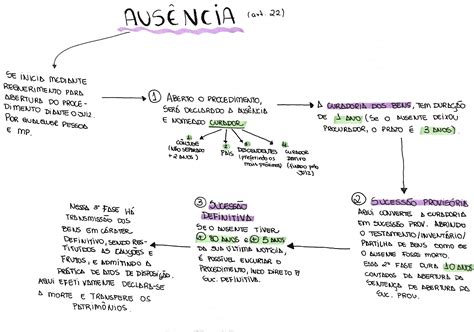 AUSÊNCIA (art. 22)
SE INICIA MEDIANTE
REQUERIMENTO PARA
ABERTURA DO PROCE-
DIMENTO DIANTE O JUIZ.
POR QUALQUER PESSOA
E MP.
1 ABERTO O PROCEDIMENTO,
SERÁ DECLARADO A AUSÊNCIA
E NOMEADO CURADOR
1. CÔNJUGE
(NÃO SEPARADO
+ 2 ANOS)
2. PAIS
3. DESCENDENTES
(preferindo os
mais próximos)
4. CURADOR
DATIVO
(fixado pelo
JUIZ)
A CURADORIA DOS BENS, TEM DURAÇÃO
DE 1 ANO (SE O AUSENTE DEIXOU
PROCURADOR, O PRAZO É 3 ANOS).
2 SUCESSÃO PROVISÓRIA
AQUI CONVERTE A CURADORIA
EM SUCESSÃO PROV. ABRINDO
O TESTAMENTO/INVENTÁRIO/
PARTILHA DE BENS COMO SE
O AUSENTE FOSSE MORTO.
ESSA 2ª FASE DURA 10 ANOS
CONTADOS DA ABERTURA DA
SENTENÇA DE ABERTURA DA
SUC. PROV.
3 SUCESSÃO
DEFINITIVA
SE O AUSENTE TIVER
+ 80 ANOS E + 5 ANOS
DA SUA ÚLTIMA NOTÍCIA,
É POSSÍVEL ENCURTAR O
PROCEDIMENTO, INDO DIRETO P/
SUC. DEFINITIVA.
NESSA 3ª FASE HÁ
TRANSMISSÃO DOS
BENS EM CARÁTER
DEFINITIVO, SENDO RES-
TITUÍDOS AS CAUÇÕES E
FRUTOS, E ADMITINDO A
PRÁTICA DE ATOS DE DISPOSIÇÃO.
AQUI EFETIVAMENTE DECLARA-SE
A MORTE E TRANSFERE OS
PATRIMÔNIOS.